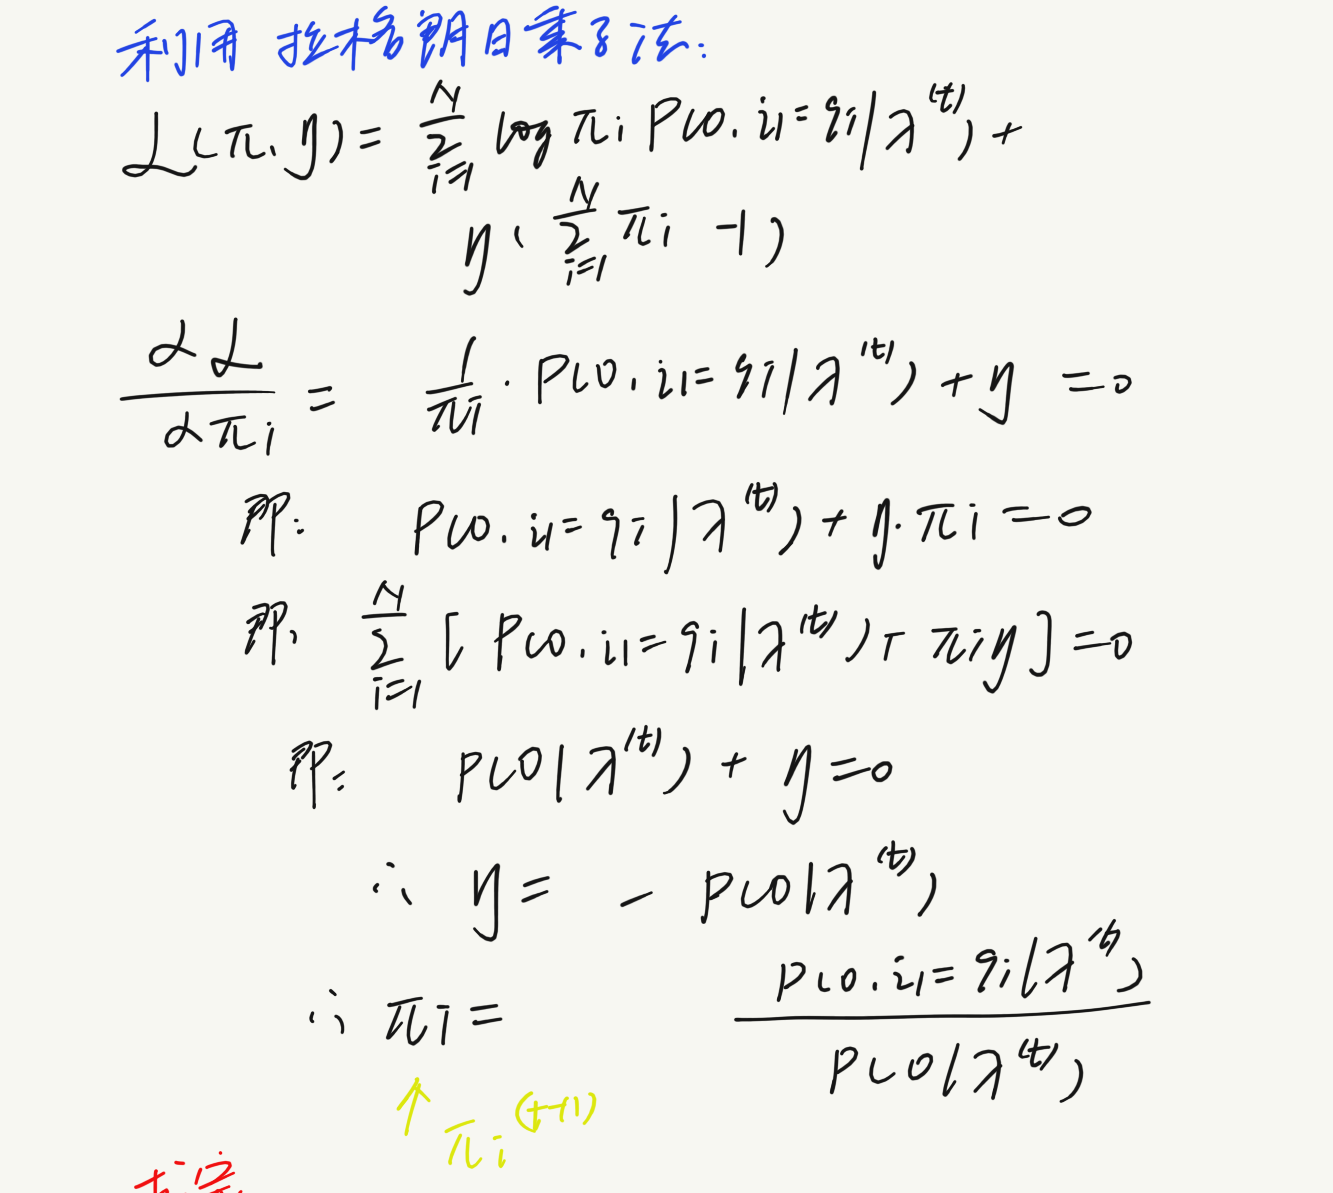 利用 拉格朗日乘子法:
L(π, η) = ∑_{i=1}^{N} log πi P(O, i1 = qi | λ^(t)) +
η ( ∑_{i=1}^{N} πi - 1 )
∂L / ∂πi = 1/πi · P(O, i1 = qi | λ^(t)) + η = 0
即: P(O, i1 = qi | λ^(t)) + η · πi = 0
即, ∑_{i=1}^{N} [ P(O, i1 = qi | λ^(t)) + πi η ] = 0
即: P(O | λ^(t)) + η = 0
∴ η = - P(O | λ^(t))
∴ πi = P(O, i1 = qi | λ^(t)) / P(O | λ^(t))
↑ πi^(t+1)